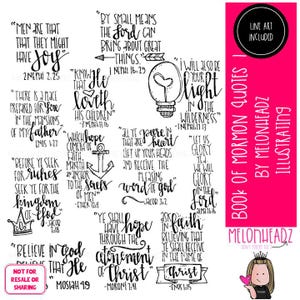 "MEN ARE THAT
THAT THEY MIGHT
HAVE
JOY"
2 NEPHI 2:25
"BY SMALL MEANS
THE Lord CAN
BRING ABOUT GREAT
THINGS."
1 NEPHI 16:29
"I KNOW
THAT He
loveth
HIS CHILDREN"
1 NEPHI 11:17
"I WILL ALSO BE
YOUR
light
IN THE
WILDERNESS"
1 NEPHI 17:13
"THERE IS A PLACE
PREPARED FOR YOU
IN THE MANSIONS
OF MY
father"
ENOS 1:27
"WHICH hope
COMETH OF
faith
MAKETH AN
anchor
TO THE
souls
OF MEN"
ETHER 12:4
"ALL YE
pure IN heart
LIFT UP YOUR HEADS
AND RECEIVE
THE
PLEASING
word OF god"
JACOB 3:2
"LET US
TRUST
IN THE
Lord"
"BEFORE YE SEEK FOR
riches
SEEK YE FOR THE
kingdom
OF God"
JACOB 2:18
"YE SHALL HAVE
hope
THROUGH THE
atonement
OF Christ"
MORONI 7:41
faith
IN
Christ
"BELIEVE IN God
BELIEVE THAT He
IS"
MOSIAH 4:9
NOT FOR
RESALE OR
SHARING
LINE ART
INCLUDED
BOOK OF MORMON QUOTES 1
BY MELONHEADZ
ILLUSTRATING
MELONHEADZ